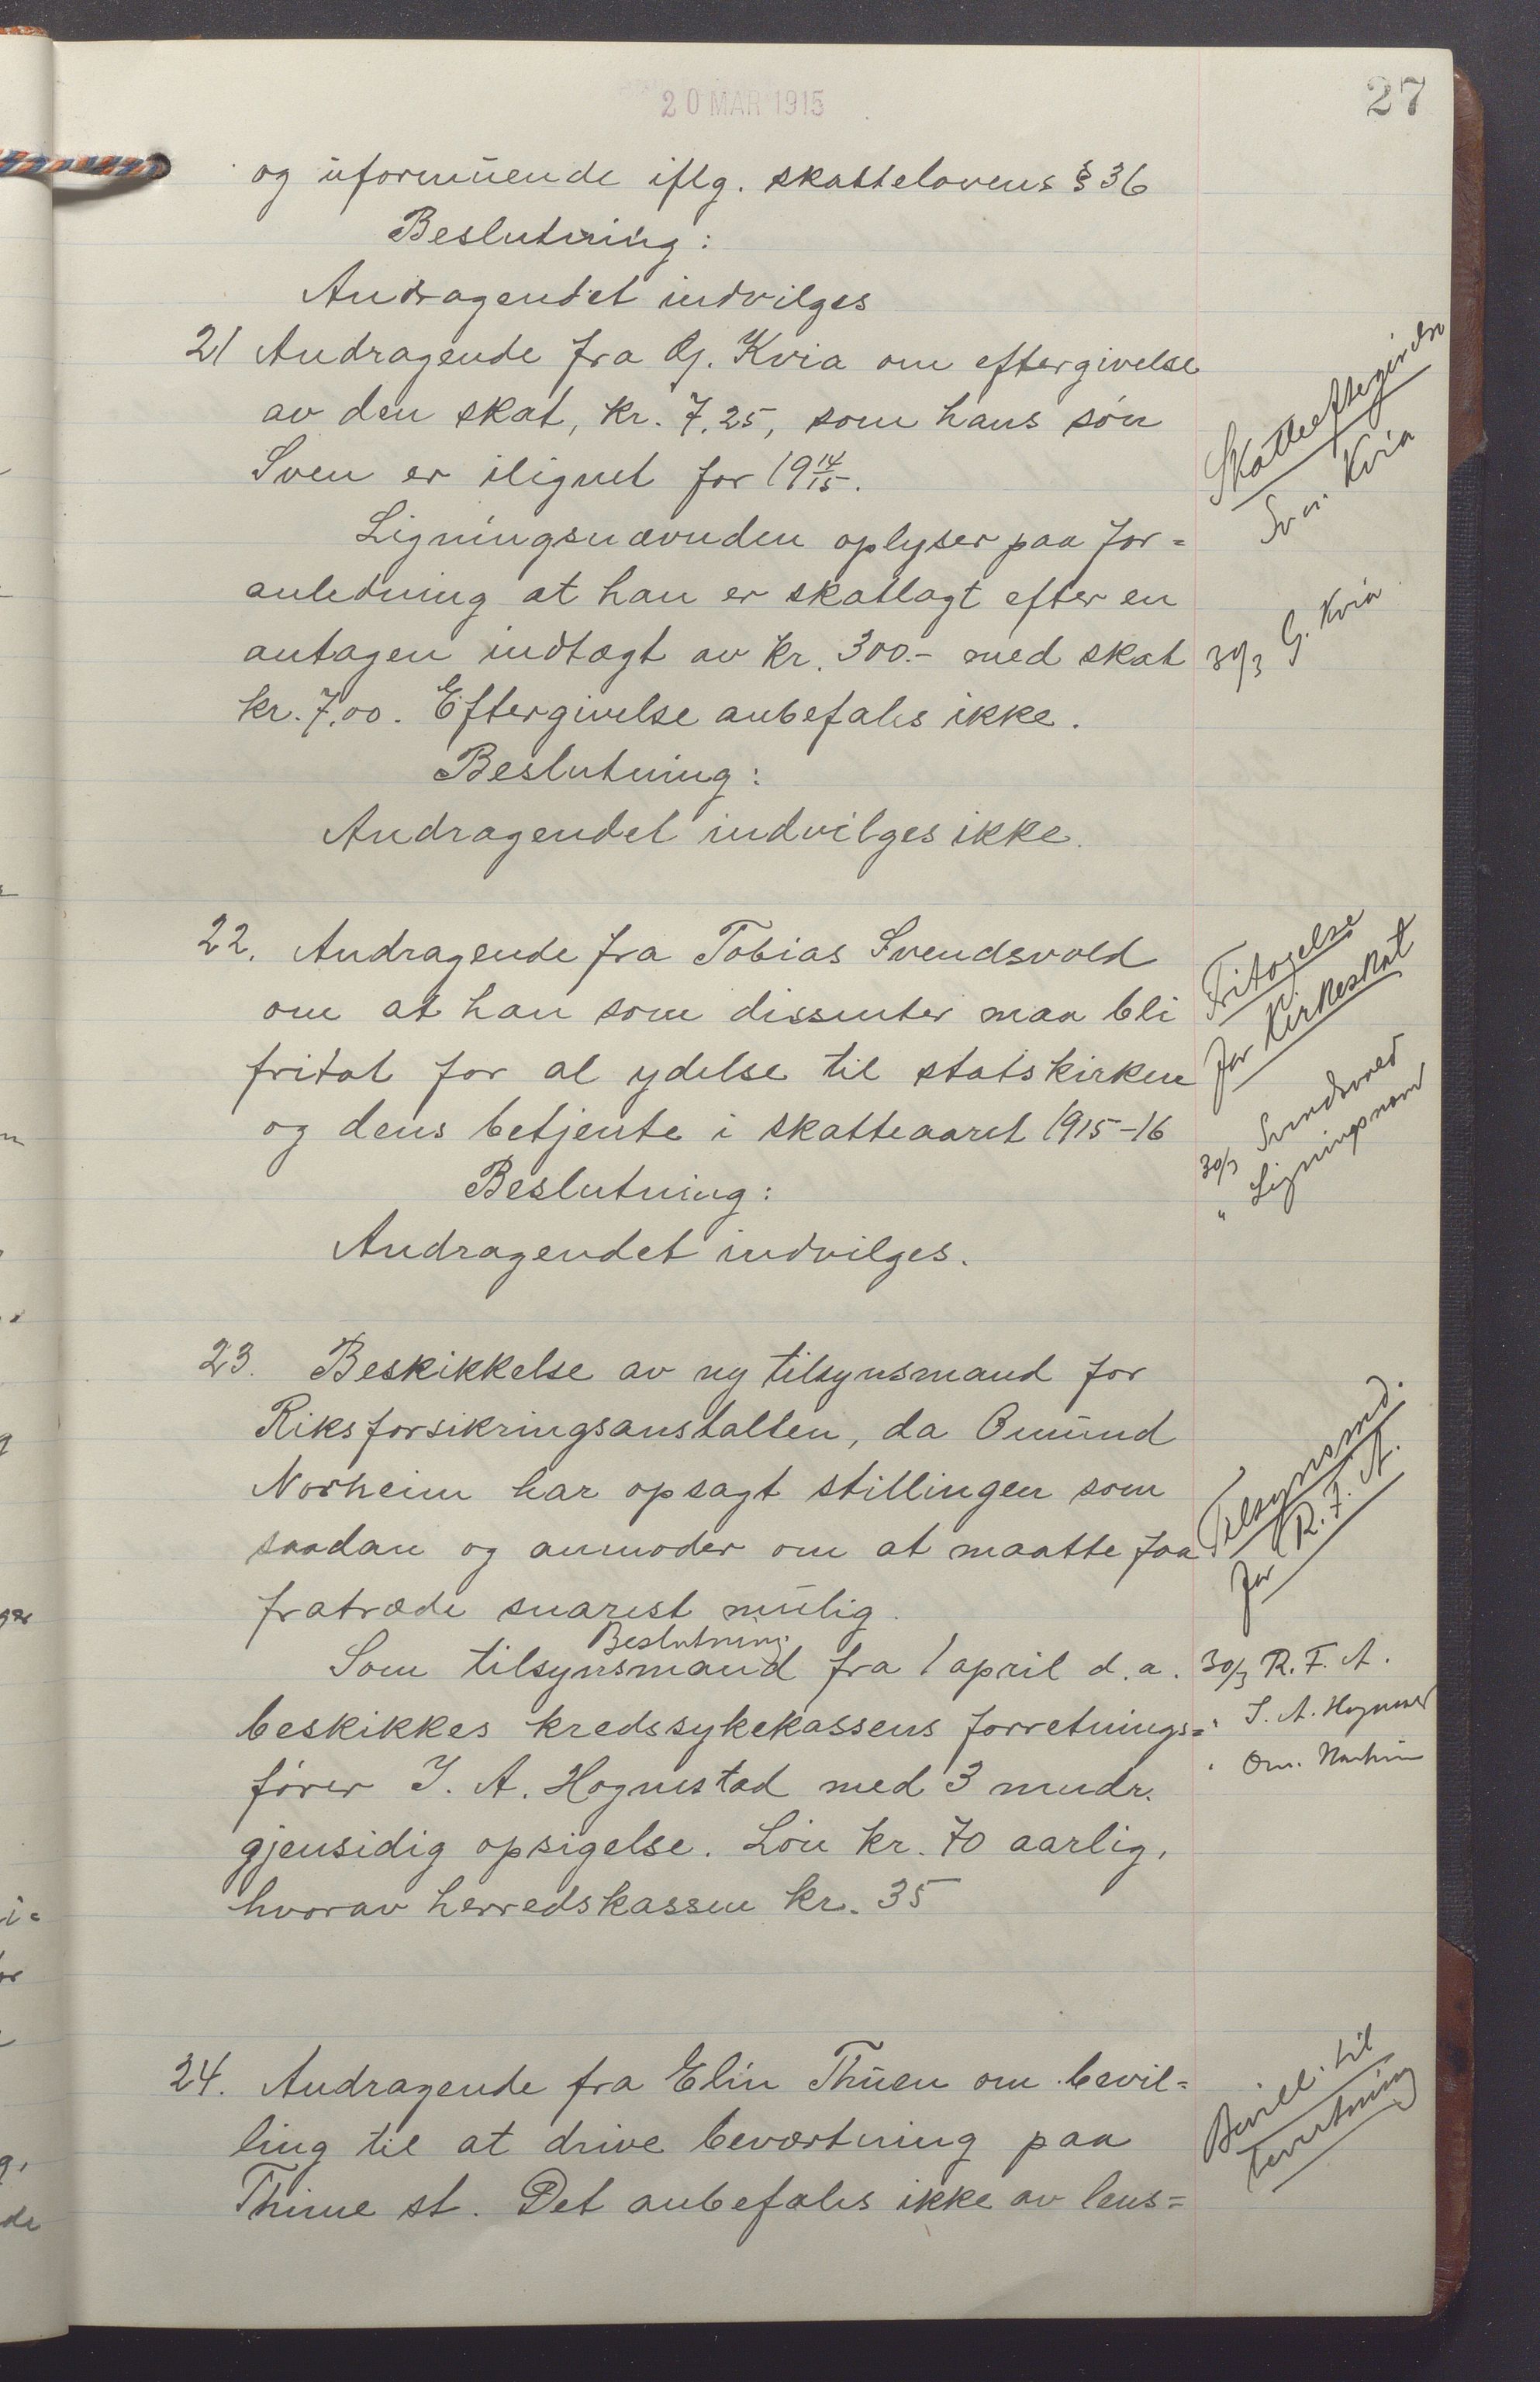 20 MAR 1915
27
og uformuende iflg. skattelovens § 36
Beslutning:
Andragendet indvilges
21 Andragende fra G. Kvia om eftergivelse
av den skat, kr. 7,25, som hans søn
Sven er ilignet for 19 14/15.
Skatteeftergivelse
Sven Kvia
Ligningsnævnden oplyser paa for=
anledning at han er skatlagt efter en
antagen indtægt av kr. 300.- med skat
30/3 G. Kvia
kr. 7,00. Eftergivelse anbefales ikke.
Beslutning:
Andragendet indvilges ikke.
22. Andragende fra Tobias Svendsvold
om at han som dissenter maa bli
fritat for al ydelse til statskirken
og dens betjente i skatteaaret 1915-16
Fritagelse
for Kirkeskat
30/3 Svendsvold
" Ligningsnævnd
Beslutning:
Andragendet indvilges.
23. Beskikkelse av ny tilsynsmand for
Riksforsikringsanstalten, da Omund
Norheim har opsagt stillingen som
saadan og anmoder om at maatte faa
fratræde snarest mulig.
Tilsynsmd.
for R. F. A.
Beslutning:
Som tilsynsmand fra 1 april d. a.
30/3 R. F. A.
beskikkes kredssykekassens forretnings=
fører I. A. Hognestad med 3 mndr.
" I. A.
" Om. Norheim
gjensidig opsigelse. Løn kr. 70 aarlig,
hvorav herredskassen kr. 35
24. Andragende fra Elin Thuen om bevil=
ling til at drive beværtning paa
Thime st. Det anbefales ikke av lens=
Bevill. til
bevertning